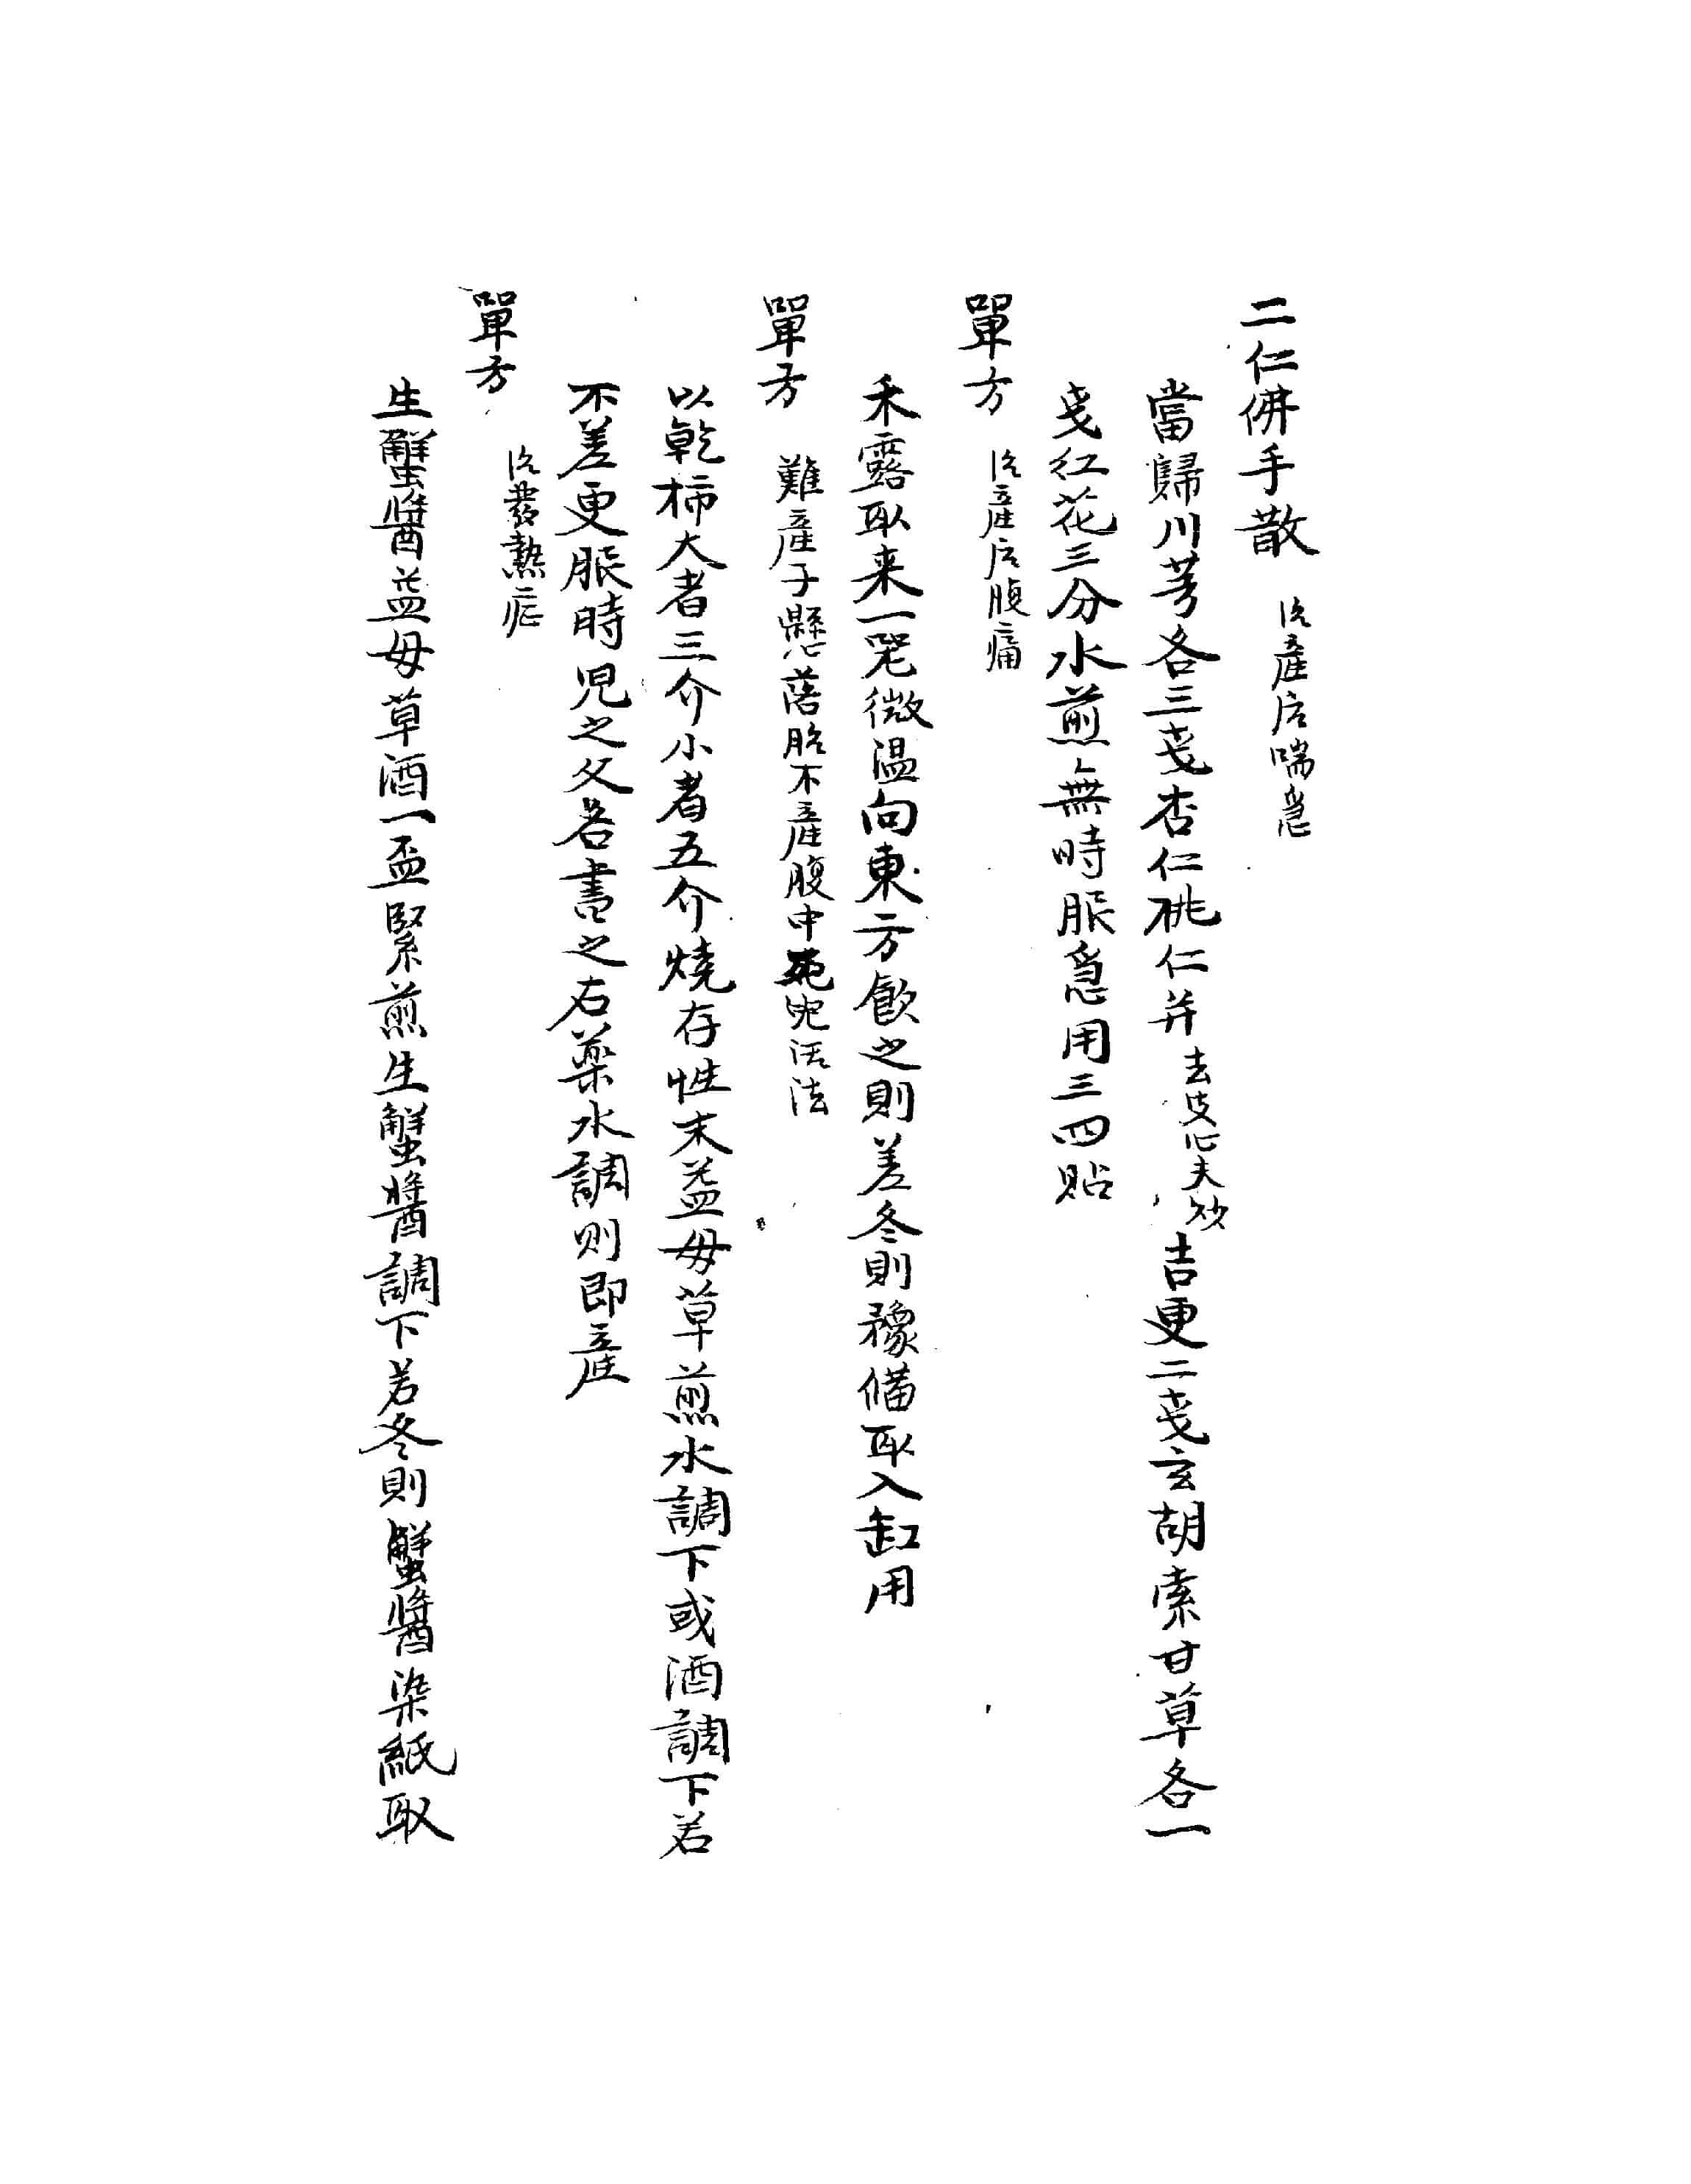 二仁佛手散 治產后喘急
當歸川芎各三戔杏仁桃仁并 去皮心夫炒 吉更二戔玄胡索甘草各一
戔紅花三分水煎無時服急用三四貼
單方 治産后腹痛
禾露取来一器微温向東方飮之則差冬則豫備取入缸用
單方 難産子懸落胎不産腹中死兒活法
以乾柿大者三介小者五介燒存性末益母草煎水調下或酒調下若
不差更服時児之父名書之右藥水調则即産
單方 治發熱症
生蟹醬益母草酒一盃緊煎生蟹醬調下若冬則蟹醬染紙取